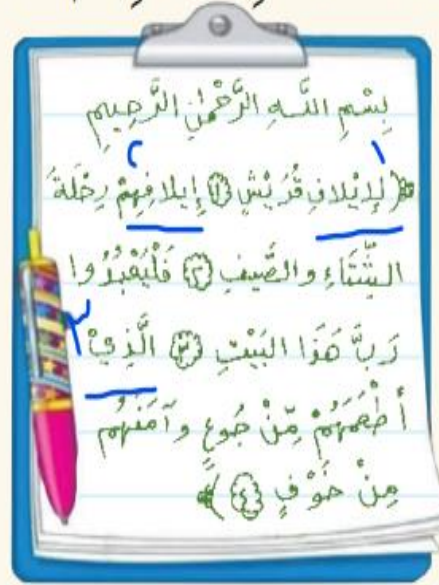 بِسْمِ اللَّـهِ الرَّحْمَٰنِ الرَّحِيمِ
١ ٢
﴿لِإِيْلَافِ قُرَيْشٍ ١ إِيلَافِهِمْ رِحْلَةَ
الشِّتَاءِ وَالصَّيْفِ ٢ فَلْيَعْبُدُوا
رَبَّ هَذَا البَيْتِ ٣ الَّذِيْ ٣
أَطْعَمَهُمْ مِّنْ جُوعٍ وَآمَنَهُم
مِنْ خَوْفٍ ٤﴾